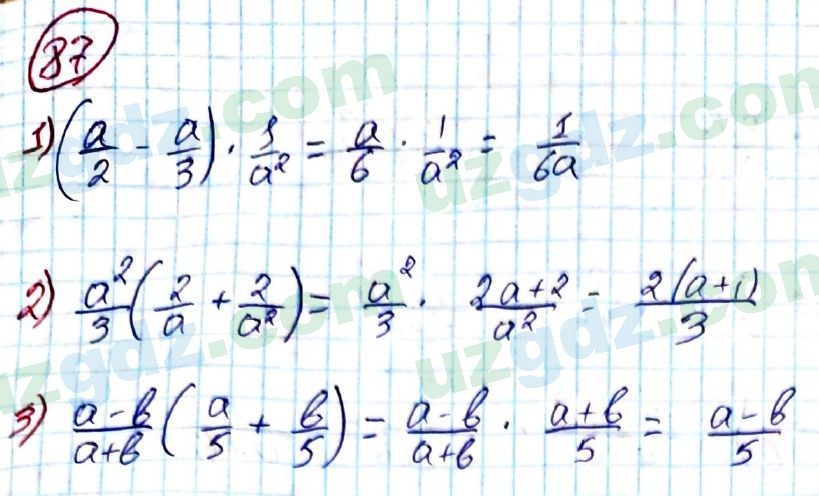 87
1) (a/2 - a/3) · 1/a² = a/6 · 1/a² = 1/6a
2) a²/3 (2/a + 2/a²) = a²/3 · 2a+2/a² = 2(a+1)/3
3) a-b/a+b (a/5 + b/5) = a-b/a+b · a+b/5 = a-b/5
uzgdz.com
uzgdz.com
uzgdz.com
uzgdz.com